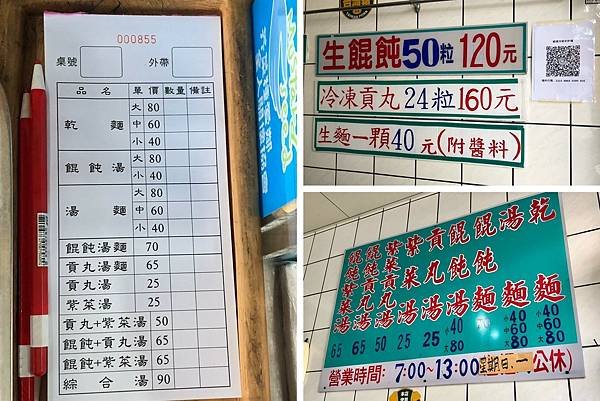 000855
桌號 外帶
品名 單價 數量 備註
乾麵 大 80
中 60
小 40
餛飩湯 大 80
小 40
湯麵 大 80
中 60
小 40
餛飩湯麵 70
貢丸湯麵 65
貢丸湯 25
紫菜湯 25
貢丸+紫菜湯 50
餛飩+貢丸湯 65
餛飩+紫菜湯 65
綜合湯 90
生餛飩50粒120元
冷凍貢丸24粒160元
生麵一顆40元(附醬料)
乾麵 小40 中60 大80
湯麵 小40 中60 大80
餛飩麵
餛飩湯 小40 大80
貢丸湯 25
紫菜湯 25
紫菜貢丸湯 50
餛飩貢丸湯 65
餛飩紫菜湯 65
營業時間: 7:00~13:00 星期日.一公休)